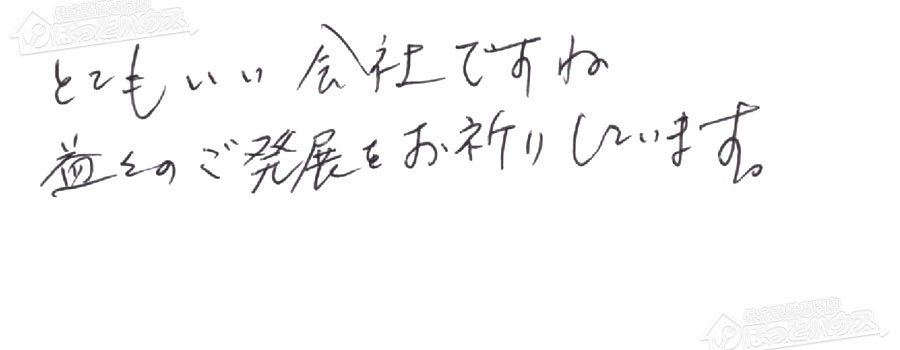 ほっとハウス
とてもいい会社ですね
益々のご発展をお祈りしています。
ほっとハウス